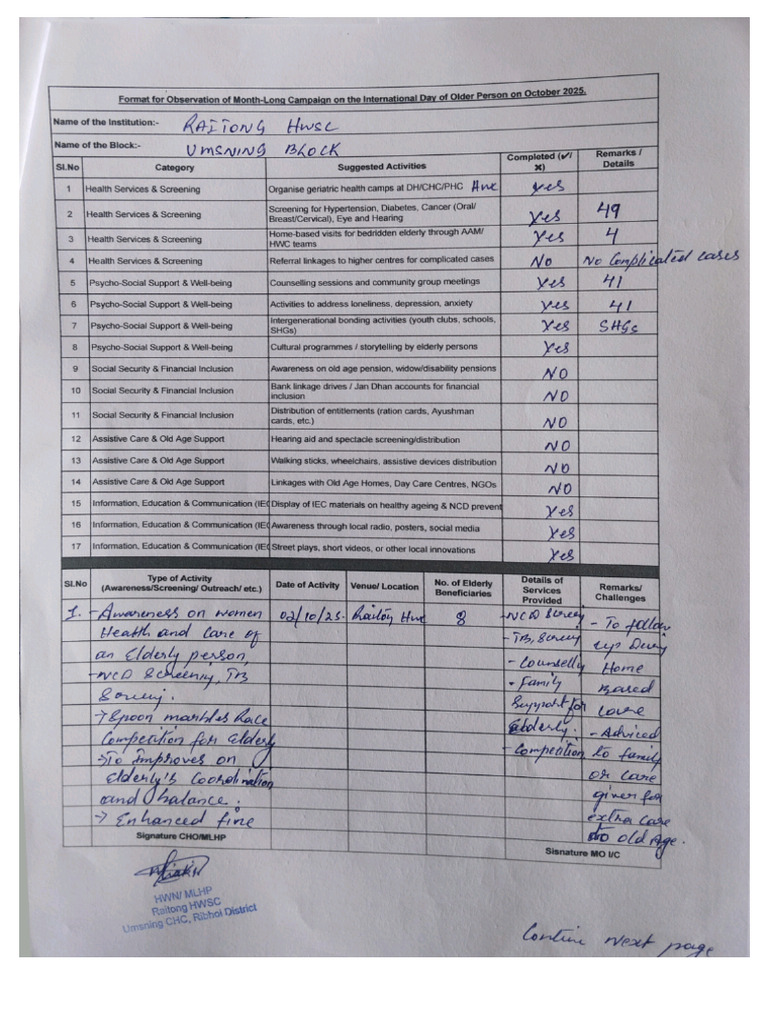 Format for Observation of Month-Long Campaign on the International Day of Older Person on October 2025.
Name of the Institution:- RAITONG HWSC
Name of the Block:- UMSNING BLOCK
Sl.No Category Suggested Activities Completed (✓/ ✗) Remarks / Details
1 Health Services & Screening Organise geriatric health camps at DH/CHC/PHC HWC yes
2 Health Services & Screening Screening for Hypertension, Diabetes, Cancer (Oral/ Breast/Cervical), Eye and Hearing yes 49
3 Health Services & Screening Home-based visits for bedridden elderly through AAM/ HWC teams yes 4
4 Health Services & Screening Referral linkages to higher centres for complicated cases No No Complicated cases
5 Psycho-Social Support & Well-being Counselling sessions and community group meetings yes 41
6 Psycho-Social Support & Well-being Activities to address loneliness, depression, anxiety yes 41
7 Psycho-Social Support & Well-being Intergenerational bonding activities (youth clubs, schools, SHGs) yes SHGs
8 Psycho-Social Support & Well-being Cultural programmes / storytelling by elderly persons yes
9 Social Security & Financial Inclusion Awareness on old age pension, widow/disability pensions NO
10 Social Security & Financial Inclusion Bank linkage drives / Jan Dhan accounts for financial inclusion NO
11 Social Security & Financial Inclusion Distribution of entitlements (ration cards, Ayushman cards, etc.) NO
12 Assistive Care & Old Age Support Hearing aid and spectacle screening/distribution NO
13 Assistive Care & Old Age Support Walking sticks, wheelchairs, assistive devices distribution NO
14 Assistive Care & Old Age Support Linkages with Old Age Homes, Day Care Centres, NGOs NO
15 Information, Education & Communication (IEC Display of IEC materials on healthy ageing & NCD prevent yes
16 Information, Education & Communication (IEC Awareness through local radio, posters, social media yes
17 Information, Education & Communication (IEC Street plays, short videos, or other local innovations yes
Sl.No Type of Activity (Awareness/Screening/ Outreach/ etc.) Date of Activity Venue/ Location No. of Elderly Beneficiaries Details of Services Provided Remarks/ Challenges
1. - Awareness on women 02/10/25 Raitong HWC 8 - NCD Screen - To follow
Health and care of - TB, Screeny up During
an Elderly person, - Counselly Home
- NCD Screening, TB - Family Based
Screeng. Support for Care
→ Spoon marbles Race Elderly. - Adviced
Competition for Elderly - Competition to family
→ To Improves on or care
Elderly's Coordination giver for
and balance. extra care
→ Enhanced fine to old Age.
Signature CHO/MLHP Sisnature MO I/C
HWN/ MLHP
Raitong HWSC
Umsning CHC, Ribhoi District
Contine Next page